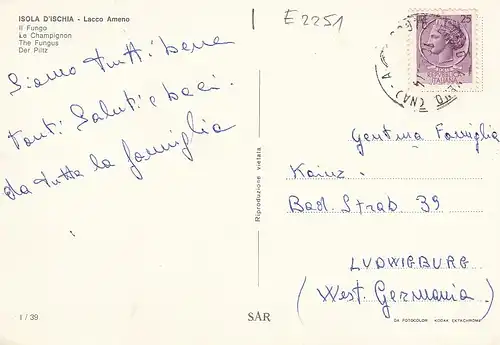 ISOLA D'ISCHIA - Lacco Ameno
Il Fungo
Le Champignon
The Fungus
Der Piltz
E 2251
25
Siamo tutti bene
Tanti Saluti e baci.
da tutta la famiglia
Riproduzione vietata
Gentma Famiglia
Kainz.
Bad. Strab. 39
LUDWIGBURG
(West Germania)
1 / 39
SAR
DA FOTOCOLOR KODAK EKTACHROME